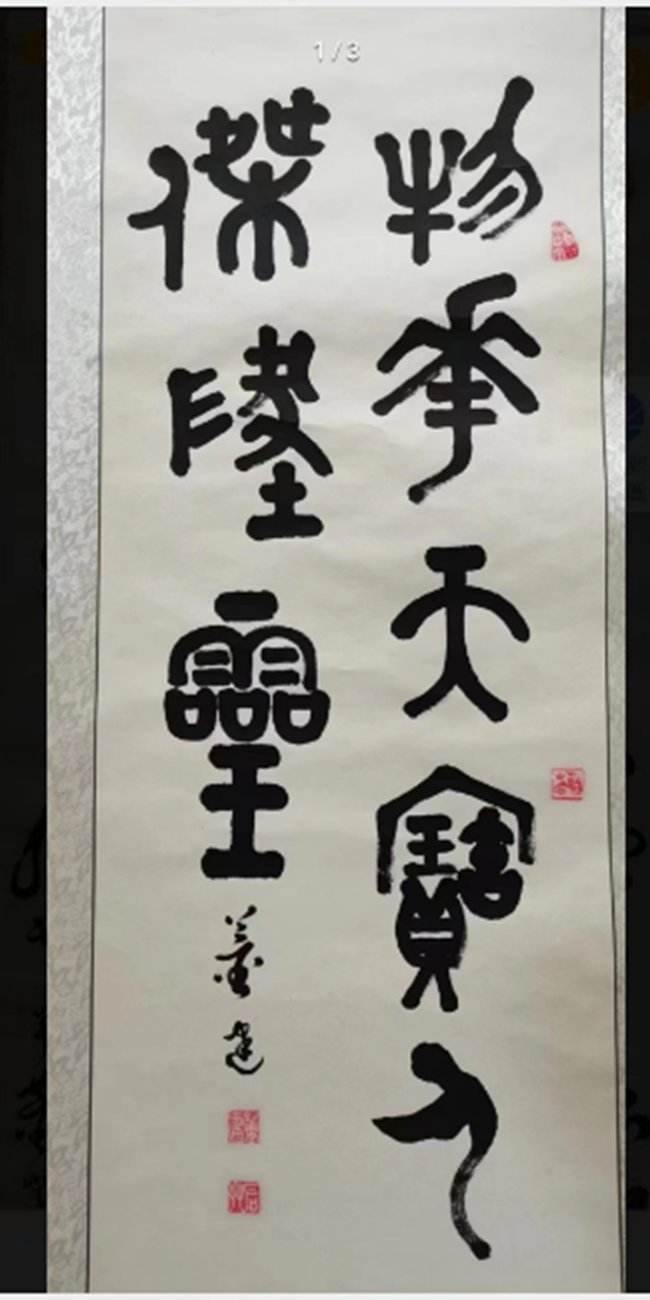 1/3
物華天寶人
傑墬靈